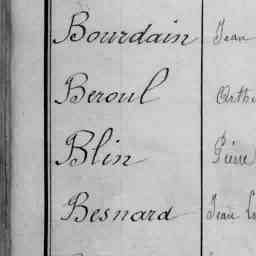 Bourdain Jean
Beroul
Blin Pierre
Besnard Jean